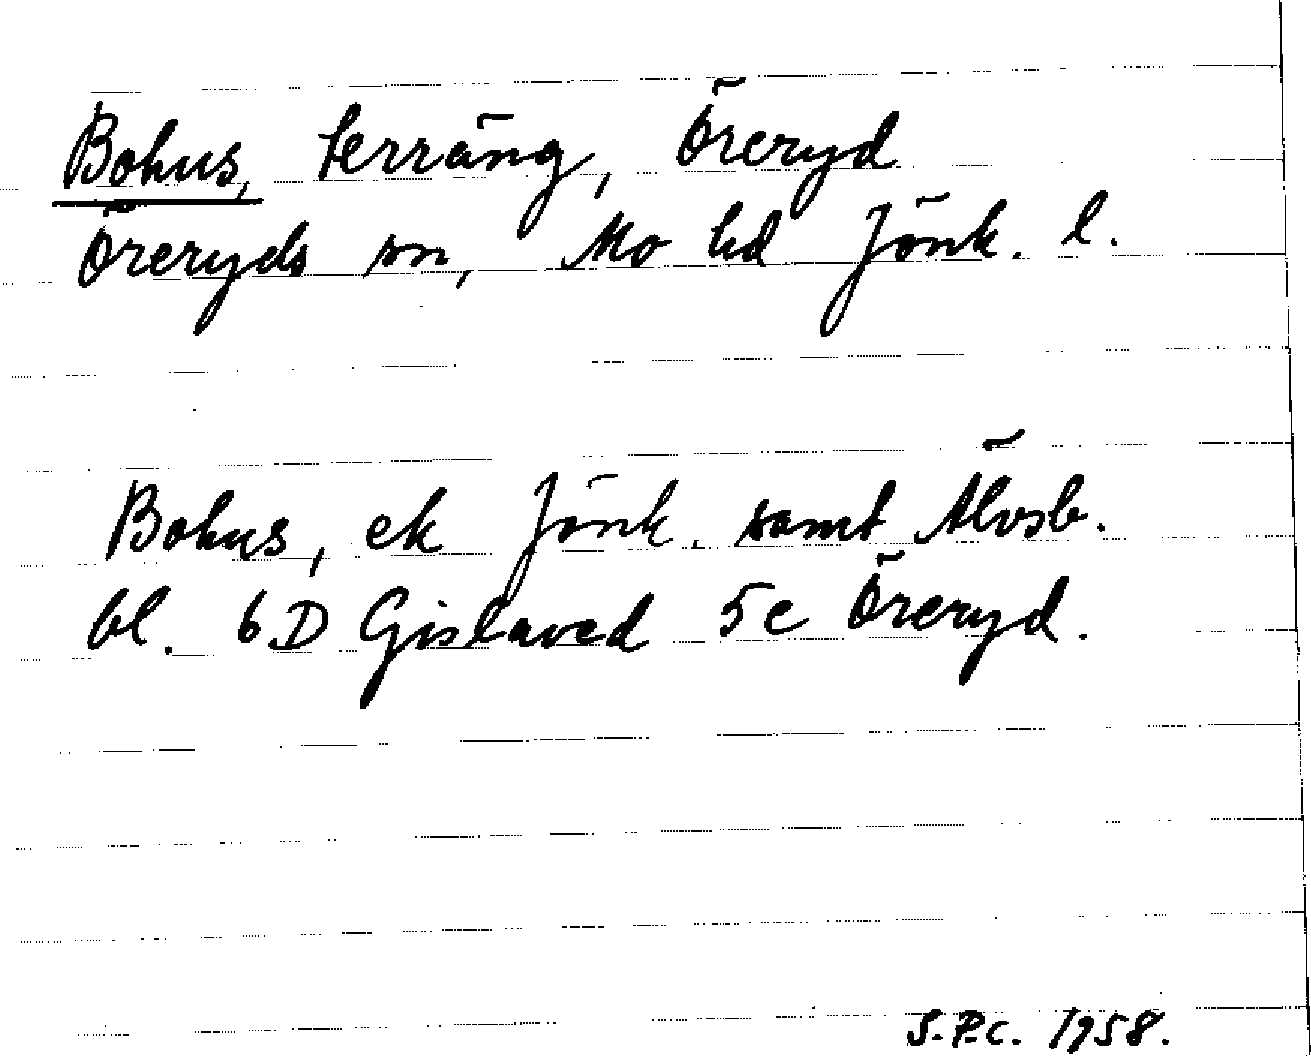 Bohus, terräng, Öreryd
Öreryds sn, Mo hd Jönk. l.
Bohus, ek Jönk. samt Älvsb.
bl. 6D Gislaved 5e Öreryd.
S.P.C. 1958.